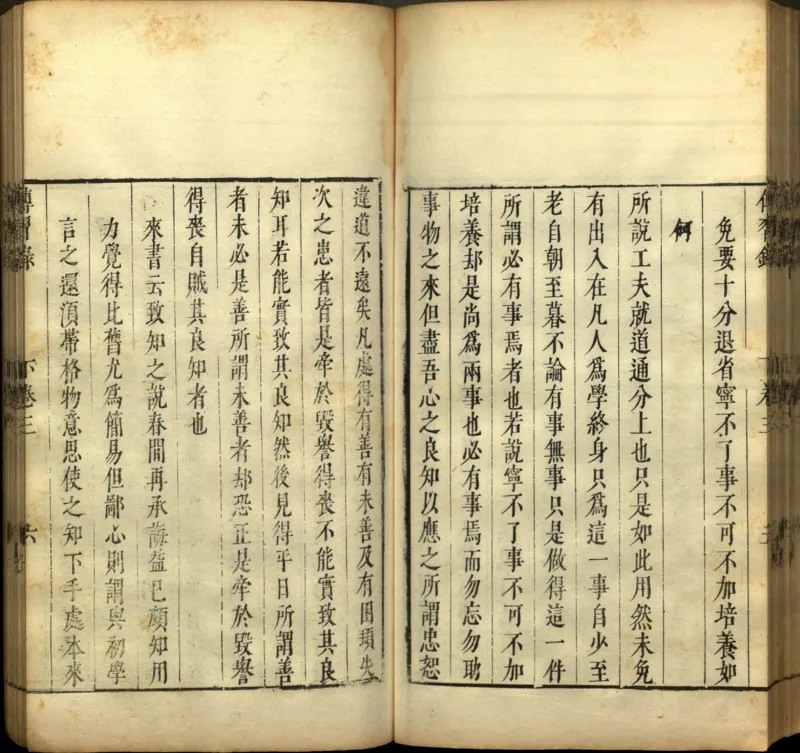 免要十分退省寧不了事不可不加培養如
何
所說工夫就道通分上也只是如此用然未免
有出入在凡人爲學終身只爲這一事自少至
老自朝至暮不論有事無事只是做得這一件
所謂必有事焉者也若說寧不了事不可不加
培養却是尚爲兩事也必有事焉而勿忘勿助
事物之來但盡吾心之良知以應之所謂忠恕
違道不遠矣凡處得有善有未善及有困頓失
次之患者皆是牽於毀譽得喪不能實致其良
知耳若能實致其良知然後見得平日所謂善
者未必是善所謂未善者却恐正是牽於毀譽
得喪自賊其良知者也
來書云致知之說春間再承誨益已頗知用
力覺得比舊尤爲簡易但鄙心則謂與初學
言之還須帶格物意思使之知下手處本來
傳習錄
下卷三
六